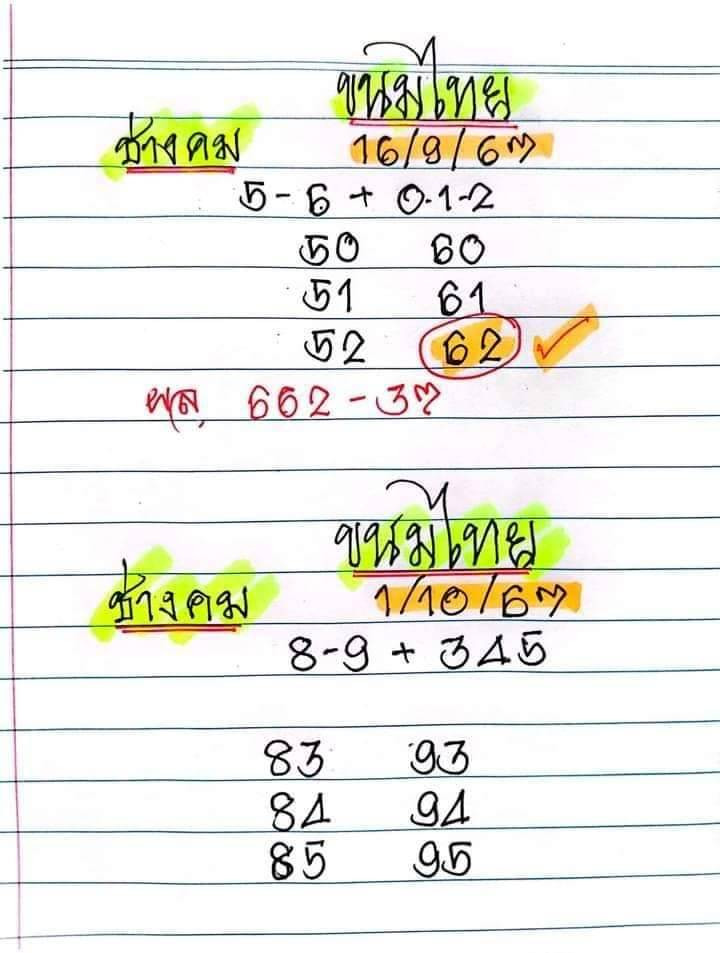 ขนมไทย
ช่างคม 16/9/67
5-6 + 0-1-2
50 60
51 61
52 62
ผล, 662-37
ขนมไทย
ช่างคม 1/10/67
8-9 + 345
83 93
84 94
85 95